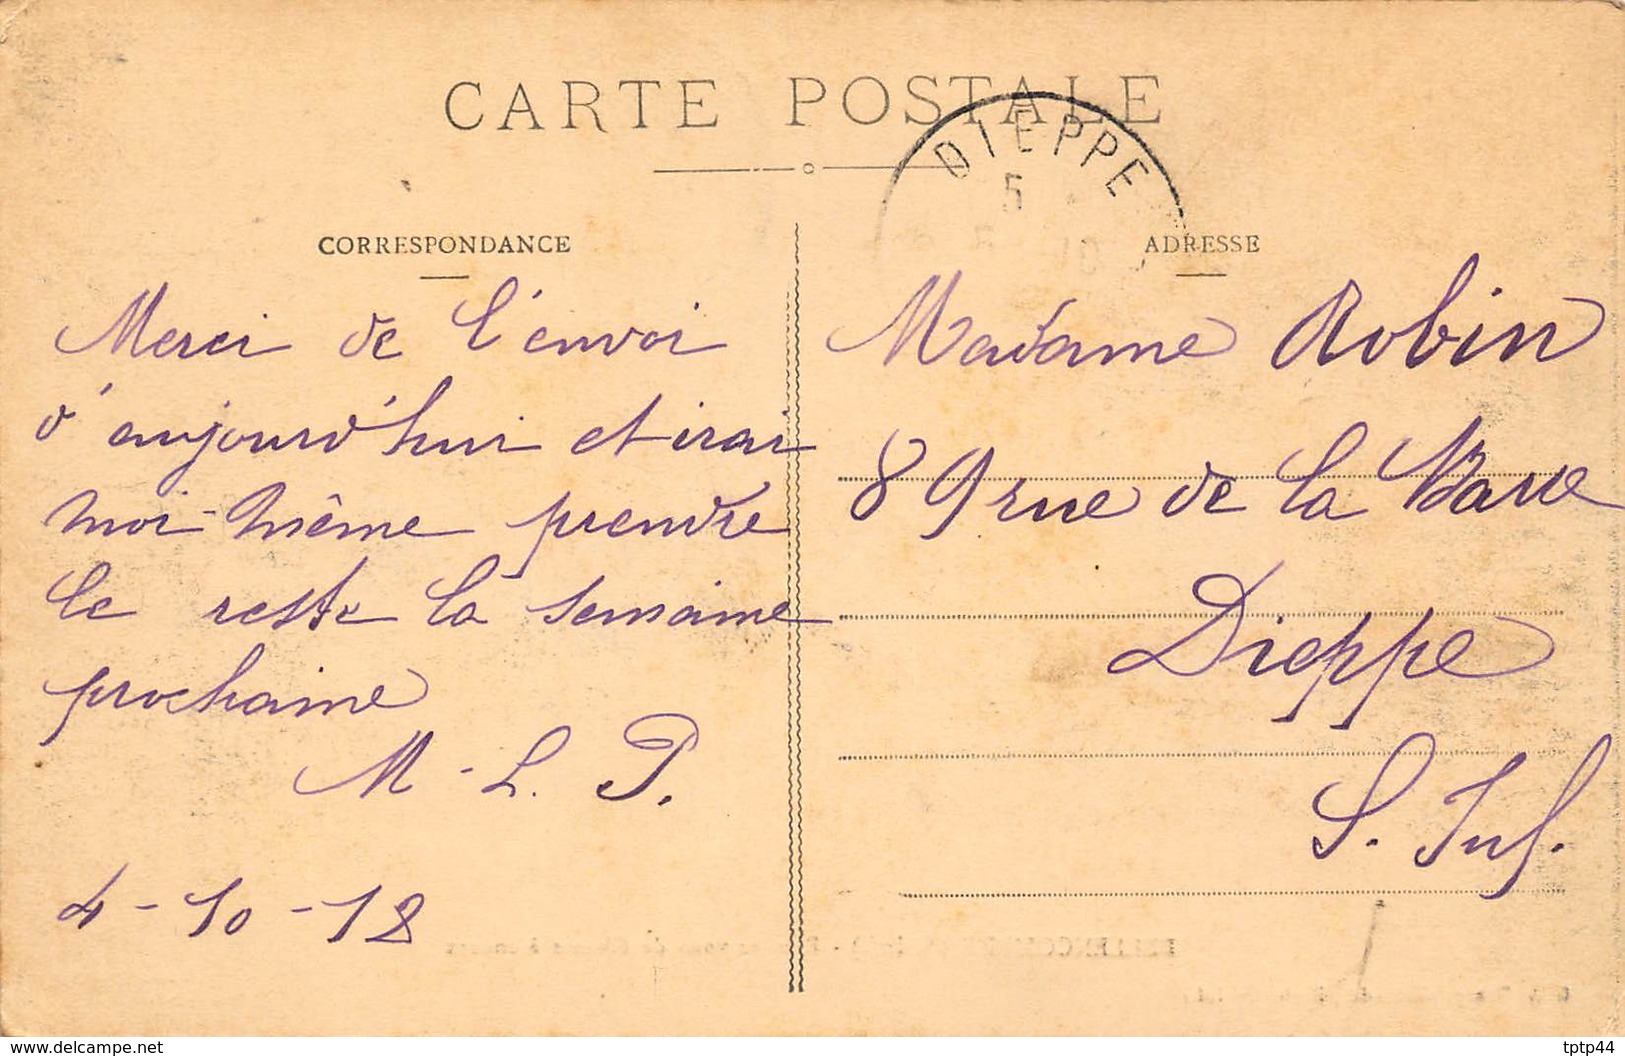 CARTE POSTALE
DIEPPE
5
CORRESPONDANCE
Merci de l'envoi
d'aujourd'hui et irai
moi-même prendre
le reste la semaine
prochaine
M-L. P.
4-10-12
ADRESSE
Madame Robin
89 rue de la Barre
Dieppe
S. Inf.
https://www.delcampe.net
tptp44